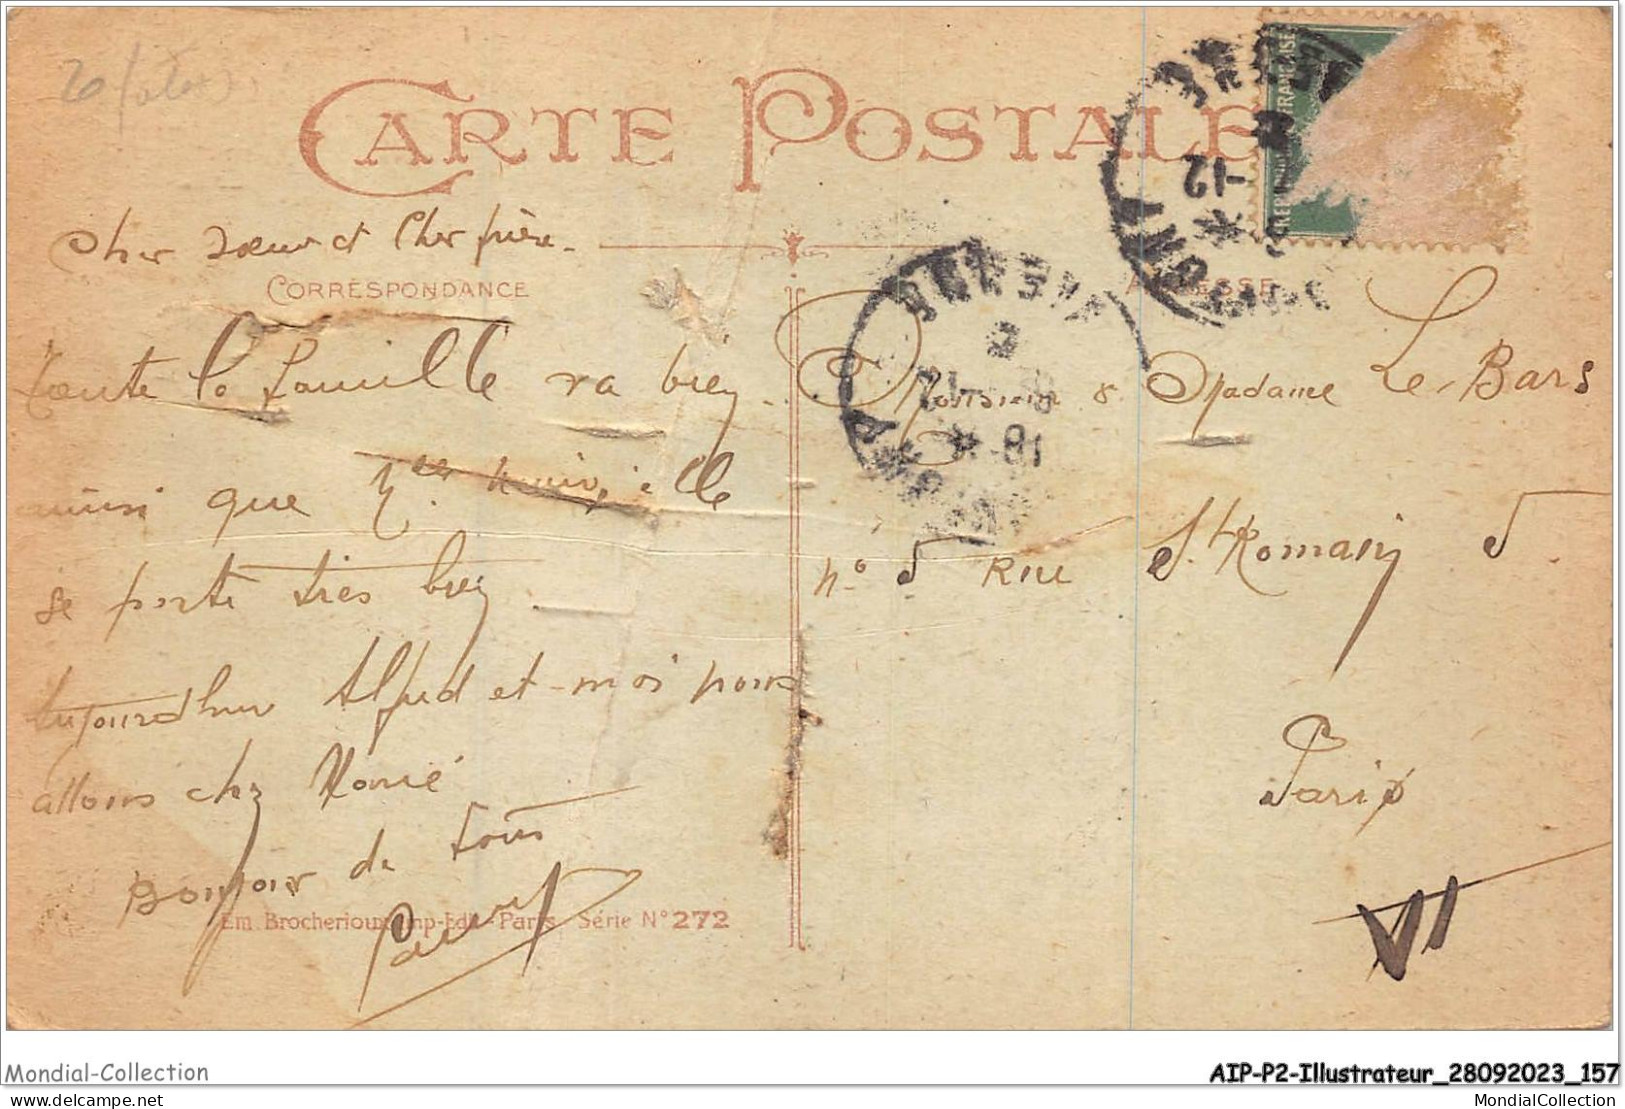 CARTE POSTALE
Cher sœur et Cher frère.
CORRESPONDANCE
ADRESSE
toute la famille va bien.
ainsi que elle
se porte très bien
aujourdhui Alfred et moi nous
allons chez
Bonjour de tous
Em. Brocherioux, Imp-Edit - Paris Série N° 272
Monsieur & Madame Le Bars
N° 5 Rue St. Romain 5.
Paris
VI
REPUBLIQUE FRANÇAISE
-12
18-
Mondial-Collection
AIP-P2-Illustrateur_28092023_157
delcampe.net
MondialCollection